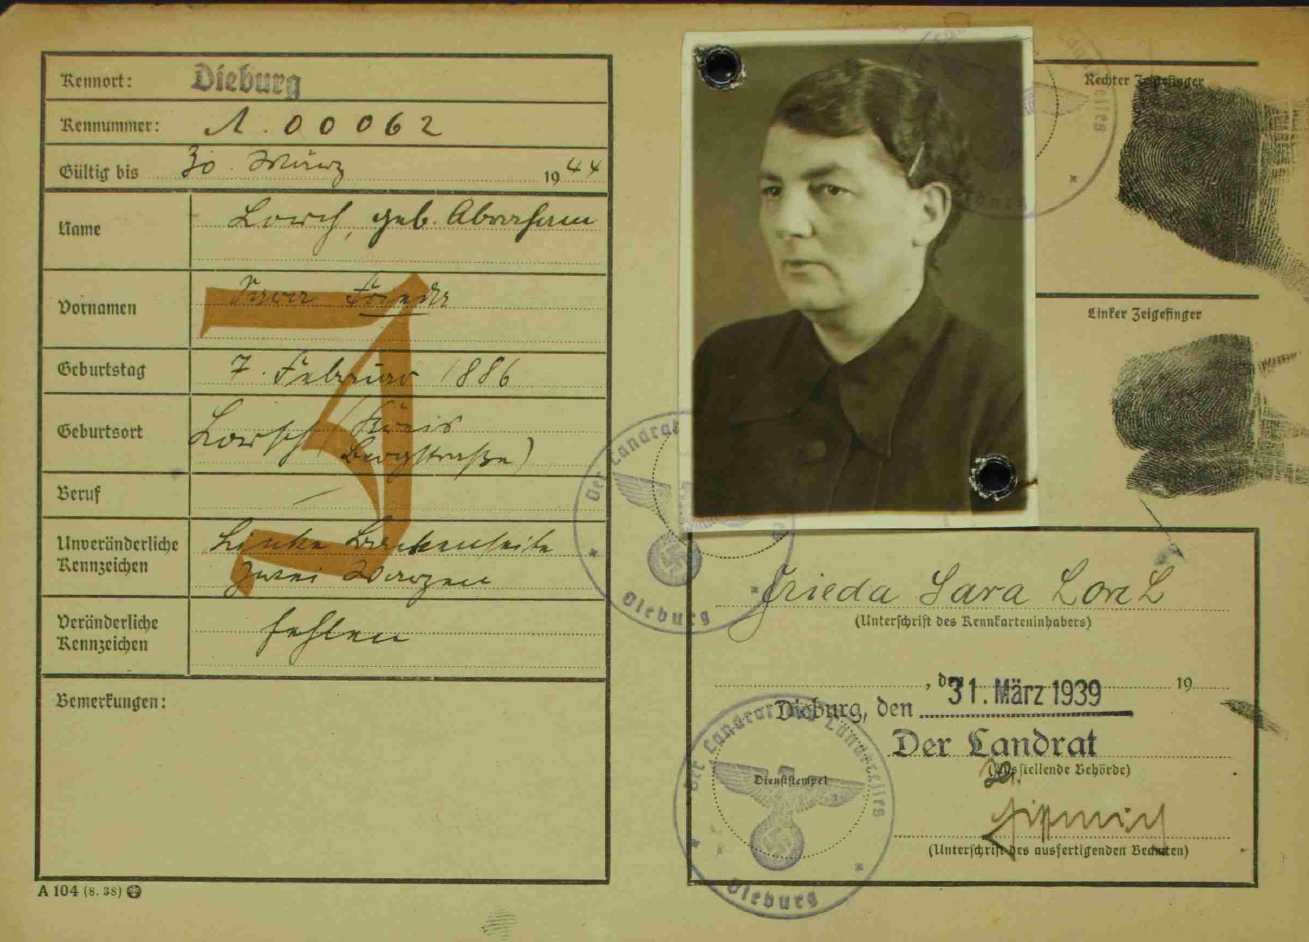 Kennort: Dieburg
Kennummer: A. 00062
Gültig bis 30. März 1944
Name Lorch, geb. Abraham
Vornamen Sara Frieda
Geburtstag 7. Februar 1886
Geburtsort Lorsch (Kreis
Bergstraße)
Beruf —
Unveränderliche Kennzeichen Linke Backenseite
zwei Warzen
Veränderliche Kennzeichen fehlen
Bemerkungen:
A 104 (8. 38)
J
Rechter Zeigefinger
Linker Zeigefinger
Der Landrat
Dieburg
Frieda Sara
(Unterschrift des Kennkarteninhabers)
, den 19
Dieburg, den 31. März 1939
Der Landrat
(Ausstellende Behörde)
(Unterschrift des ausfertigenden Beamten)
Der Landrat des Landkreises
Dienststempel
Dieburg